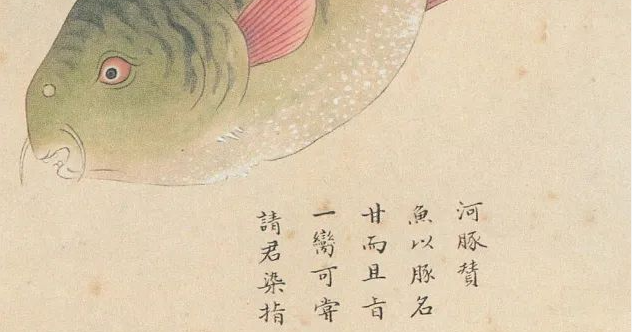 河豚賛
魚以豚名
甘而且旨
一臠可嘗
請君染指